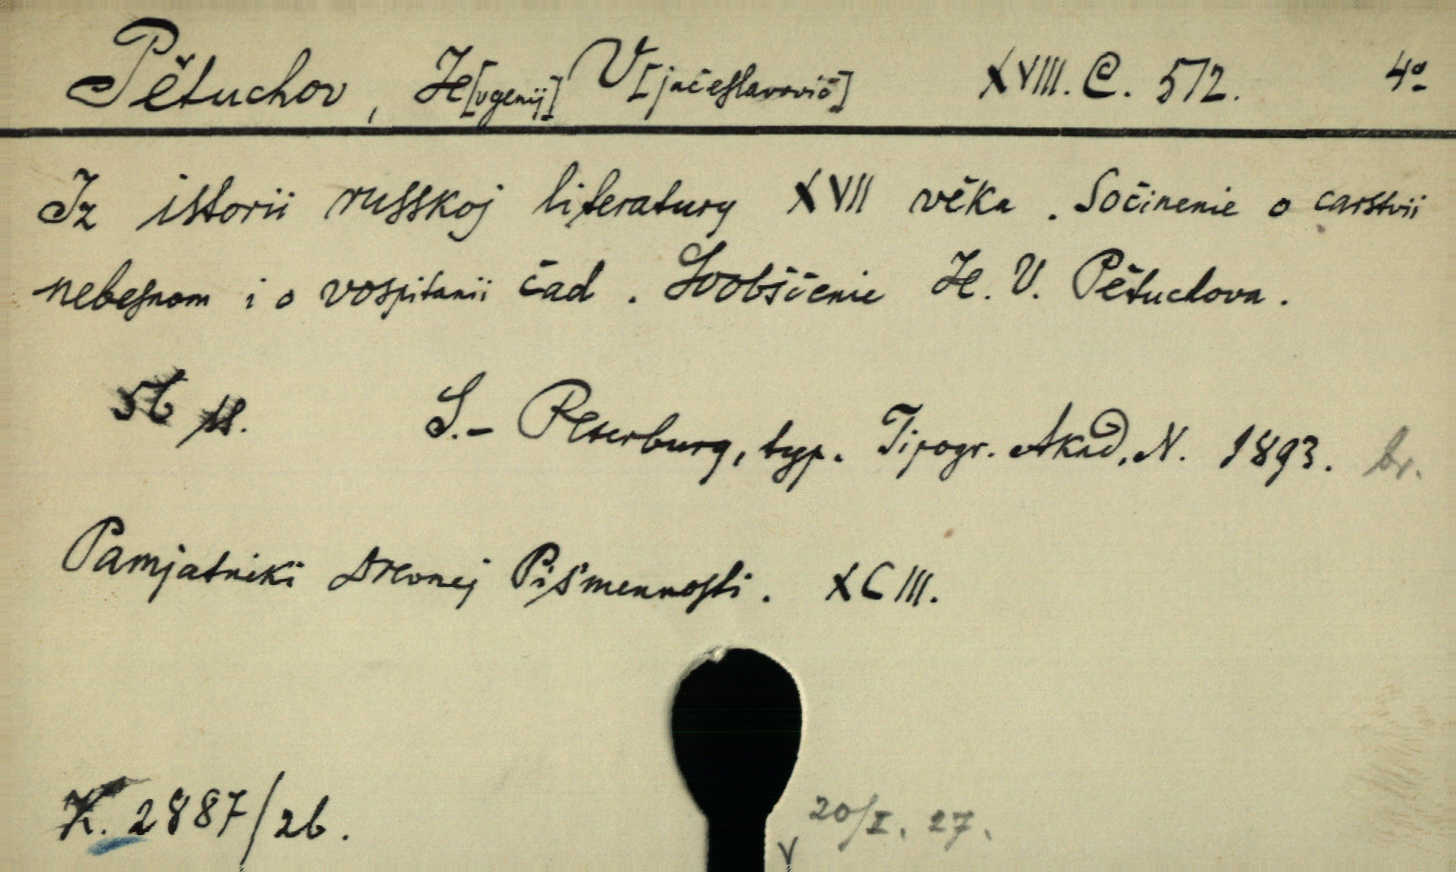 Pětuchov, Je[vgenij] V[jačeslavovič] XVIII. C. 572. 4º
Iz istorii russkoj literatury XVII věka. Sočinenie o carstvii
nebesnom i o vospitanii čad. Soobščenie Je. V. Pětuchova.
56 ss. S.- Peterburg, typ. Tipogr. Akad. N. 1893. br.
Pamjatniki Drevnej Piśmennosti. XCIII.
K. 2887/26.
20/I. 27.
V